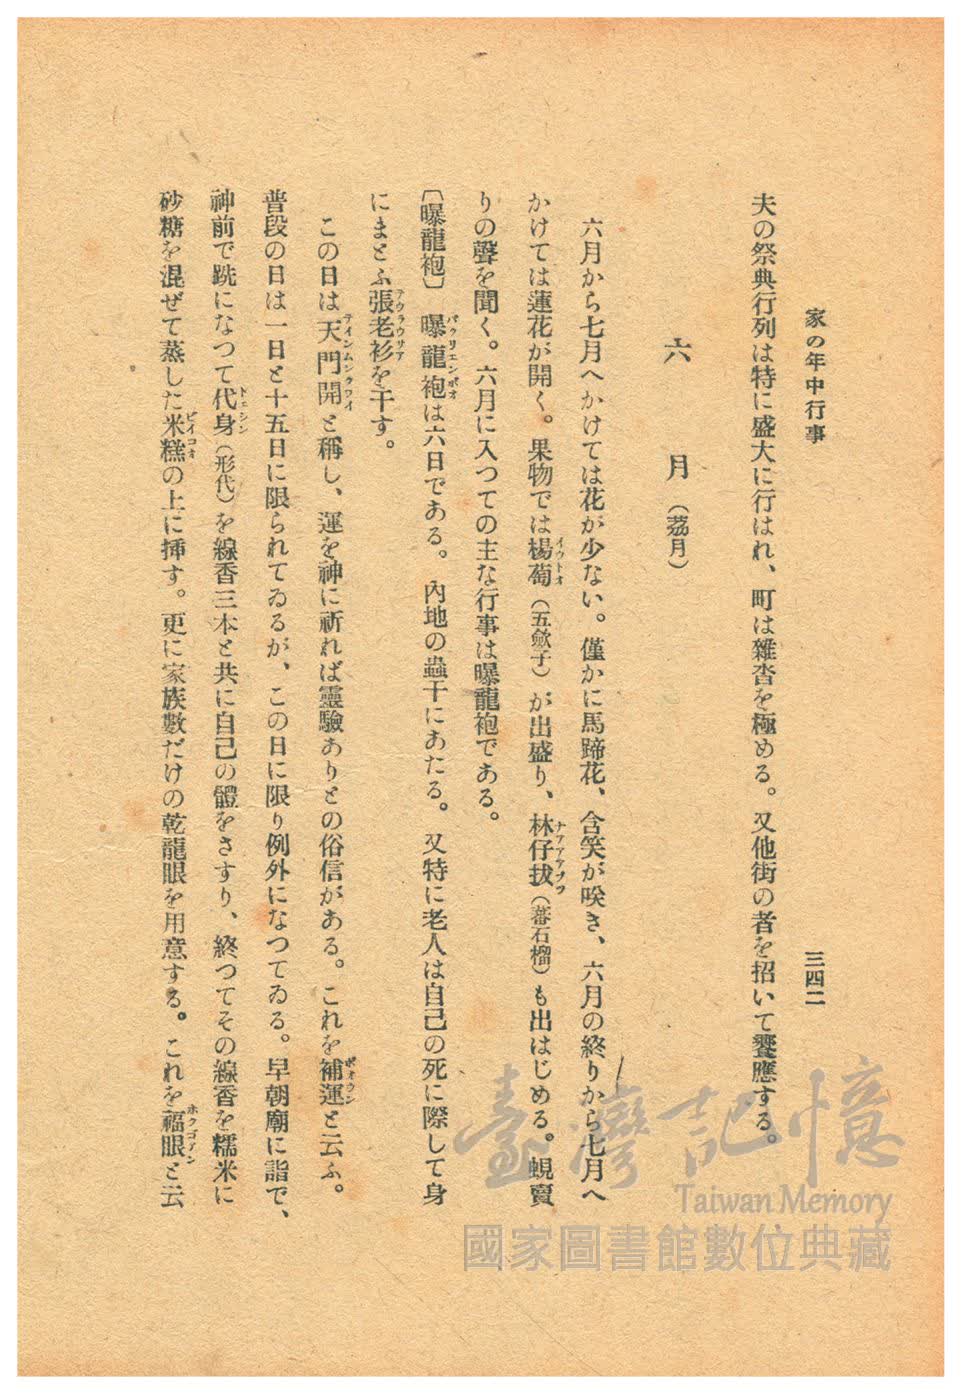 家の年中行事
三四二
夫の祭典行列は特に盛大に行はれ、町は雜沓を極める。又他街の者を招いて饗應する。
六月（茘月）
六月から七月へかけては花が少ない。僅かに馬蹄花、含笑が咲き、六月の終りから七月へ
かけては蓮花が開く。果物では楊萄（五歛子）が出盛り、林仔拔（蕃石榴）も出はじめる。蜆賣
りの聲を聞く。六月に入つての主な行事は曝龍袍である。
〔曝龍袍〕 曝龍袍は六日である。內地の蟲干にあたる。又特に老人は自己の死に際して身
にまとふ張老衫を干す。
この日は天門開と稱し、運を神に祈れば靈驗ありとの俗信がある。これを補運と云ふ。
普段の日は一日と十五日に限られてゐるが、この日に限り例外になつてゐる。早朝廟に詣で、
神前で跣になつて代身（形代）を線香三本と共に自己の體をさすり、終つてその線香を糯米に
砂糖を混ぜて蒸した米糕の上に揷す。更に家族數だけの乾龍眼を用意する。これを福眼と云
臺灣記憶
Taiwan Memory
國家圖書館數位典藏